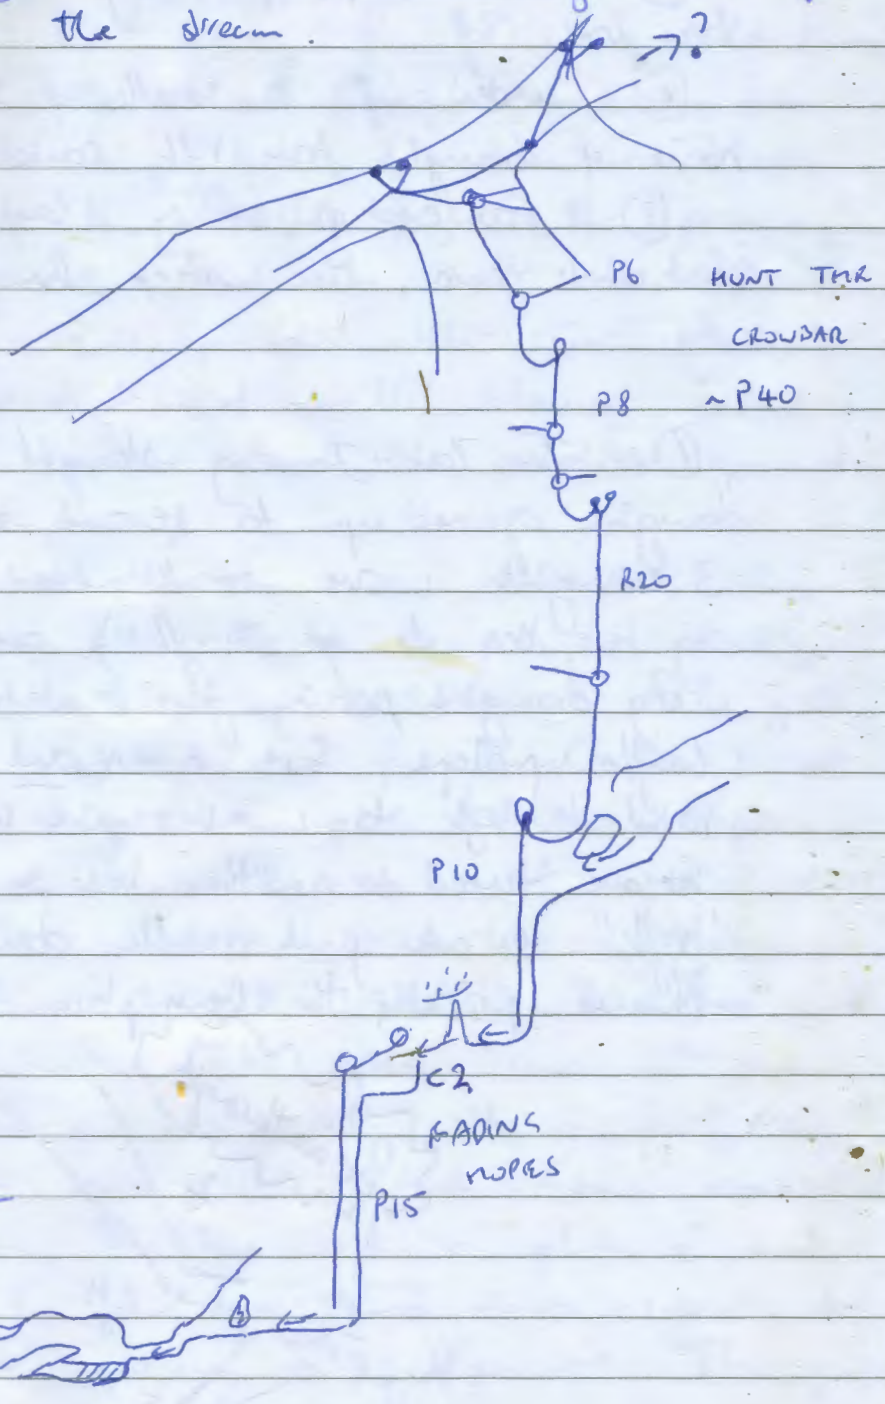 the stream.
→?
P6 HUNT THE
CROWBAR
P8 ~P40
R20
P10
C2
FADING
HOPES
P15